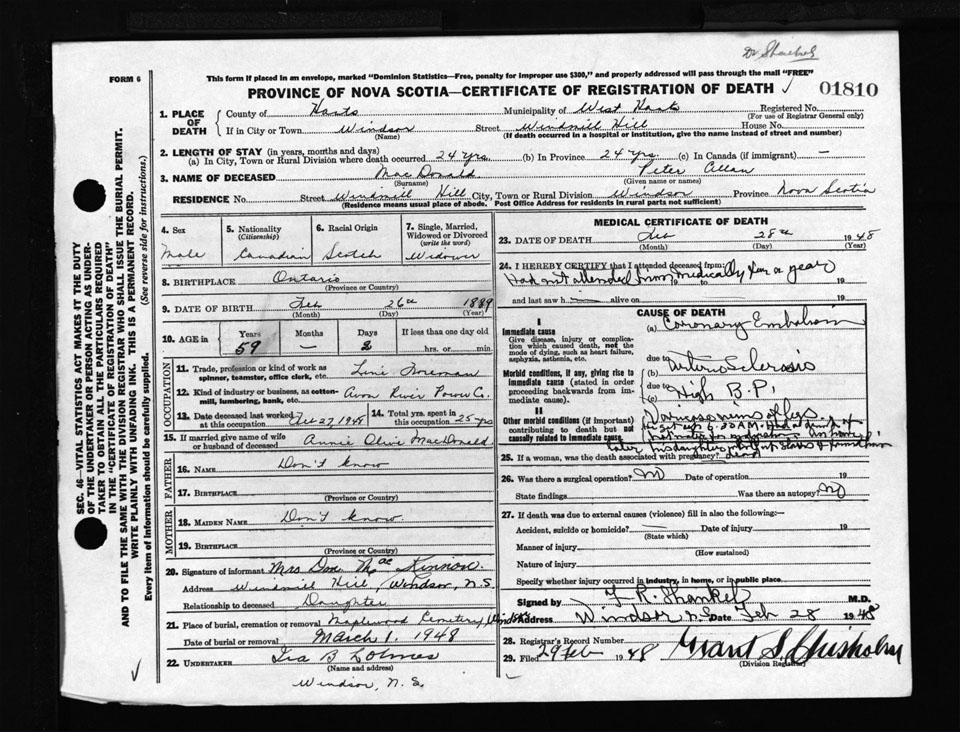 Dr Shankel
FORM 6
This form if placed in an envelope, marked "Dominion Statistics—Free, penalty for improper use $300," and properly addressed will pass through the mail "FREE"
PROVINCE OF NOVA SCOTIA—CERTIFICATE OF REGISTRATION OF DEATH ✓ 01810
1. PLACE OF DEATH
County of Hants Municipality of West Hants Registered No.
(For use of Registrar General only)
If in City or Town Windsor Street Windmill Hill House No.
(Name) (If death occurred in a hospital or institution, give the name instead of street and number)
2. LENGTH OF STAY (in years, months and days)
(a) In City, Town or Rural Division where death occurred 24 yrs. (b) In Province 24 yrs (c) In Canada (if immigrant) —
3. NAME OF DECEASED MacDonald Peter Allan
(Surname) (Given name or names)
RESIDENCE No. Street Windmill Hill City, Town or Rural Division Windsor Province Nova Scotia
(Residence means usual place of abode. Post Office Address for residents in rural parts not sufficient)
4. Sex
Male
5. Nationality
(Citizenship)
Canadian
6. Racial Origin
Scotch
7. Single, Married, Widowed or Divorced
(write the word)
Widower
8. BIRTHPLACE Ontario
(Province or Country)
9. DATE OF BIRTH Feb 26th 1889
(Month) (Day) (Year)
10. AGE in Years Months Days If less than one day old
59 — 2 hrs. or min.
OCCUPATION
11. Trade, profession or kind of work as spinner, teamster, office clerk, etc. Line Foreman
12. Kind of industry or business, as cotton-mill, lumbering, bank, etc. Avon River Power Co.
13. Date deceased last worked at this occupation Feb 27, 1948 14. Total yrs. spent in this occupation 25 yrs
15. If married give name of wife or husband of deceased Annie Olive MacDonald
FATHER
16. NAME Don't know
17. BIRTHPLACE
(Province or Country)
MOTHER
18. MAIDEN NAME Don't know.
19. BIRTHPLACE
(Province or Country)
20. Signature of informant Mrs Don MacKinnon
Address Windmill Hill, Windsor, N.S.
Relationship to deceased Daughter
21. Place of burial, cremation or removal Maplewood Cemetery, Windsor
Date of burial or removal March 1. 1948
22. UNDERTAKER Ira B Lohnes
(Name and address)
Windsor, N. S.
MEDICAL CERTIFICATE OF DEATH
23. DATE OF DEATH Feb 28th 1948
(Month) (Day) (Year)
24. I HEREBY CERTIFY that I attended deceased from:
Had not attended him medically for a year
19 to 19
and last saw h alive on 19
CAUSE OF DEATH
I
Immediate cause
Give disease, injury or complication which caused death, not the mode of dying, such as heart failure, asphyxia, asthenia, etc.
(a) Coronary Embolism
due to
Morbid conditions, if any, giving rise to immediate cause (stated in order proceeding backwards from immediate cause).
Arteriosclerosis
due to
(c) High B.P.
II
Other morbid conditions (if important) contributing to death but not causally related to immediate cause.
Varicose veins of legs
25. If a woman, was the death associated with pregnancy? dead
26. Was there a surgical operation? No Date of operation 19
State findings Was there an autopsy? No
27. If death was due to external causes (violence) fill in also the following:—
Accident, suicide or homicide? — Date of injury 19
(State which)
Manner of injury
(How sustained)
Nature of injury
Specify whether injury occurred in industry, in home, or in public place.
Signed by F. R. Shankel M.D.
Windsor N.S. Date Feb 28 1948
28. Registrar's Record Number
29. Filed 29 Feb 1948 Grant S. Chisholm
(Division Registrar)
SEC. 46—VITAL STATISTICS ACT MAKES IT THE DUTY
OF THE UNDERTAKER OR PERSON ACTING AS UNDERTAKER TO OBTAIN ALL THE PARTICULARS REQUIRED
IN THE "CERTIFICATE OF REGISTRATION OF DEATH"
AND TO FILE THE SAME WITH THE DIVISION REGISTRAR WHO SHALL ISSUE THE BURIAL PERMIT.
WRITE PLAINLY WITH UNFADING INK. THIS IS A PERMANENT RECORD.
Every item of information should be carefully supplied. (See reverse side for instructions.)